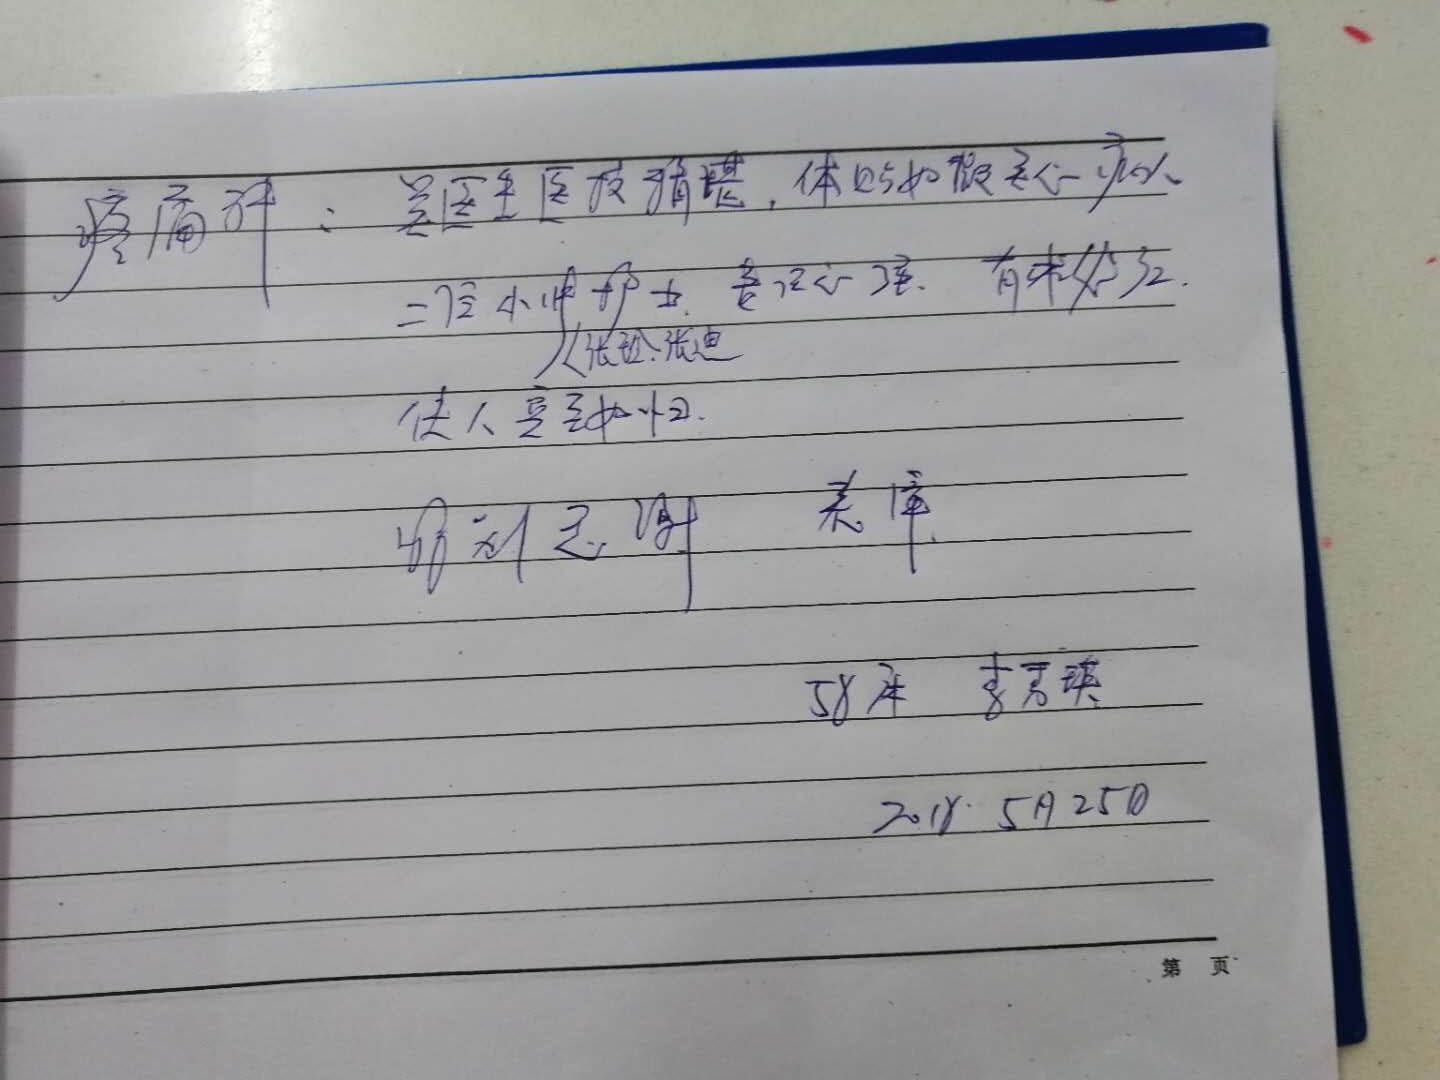 疼痛科: 吴医生医技精堪,体贴如微,关心病人
二位小帅护士,责任心强.有求必应.
张玲、张迪
使人宾至如归.
特别感谢 表
58床 李秀瑛
2018.5月25日
第 页